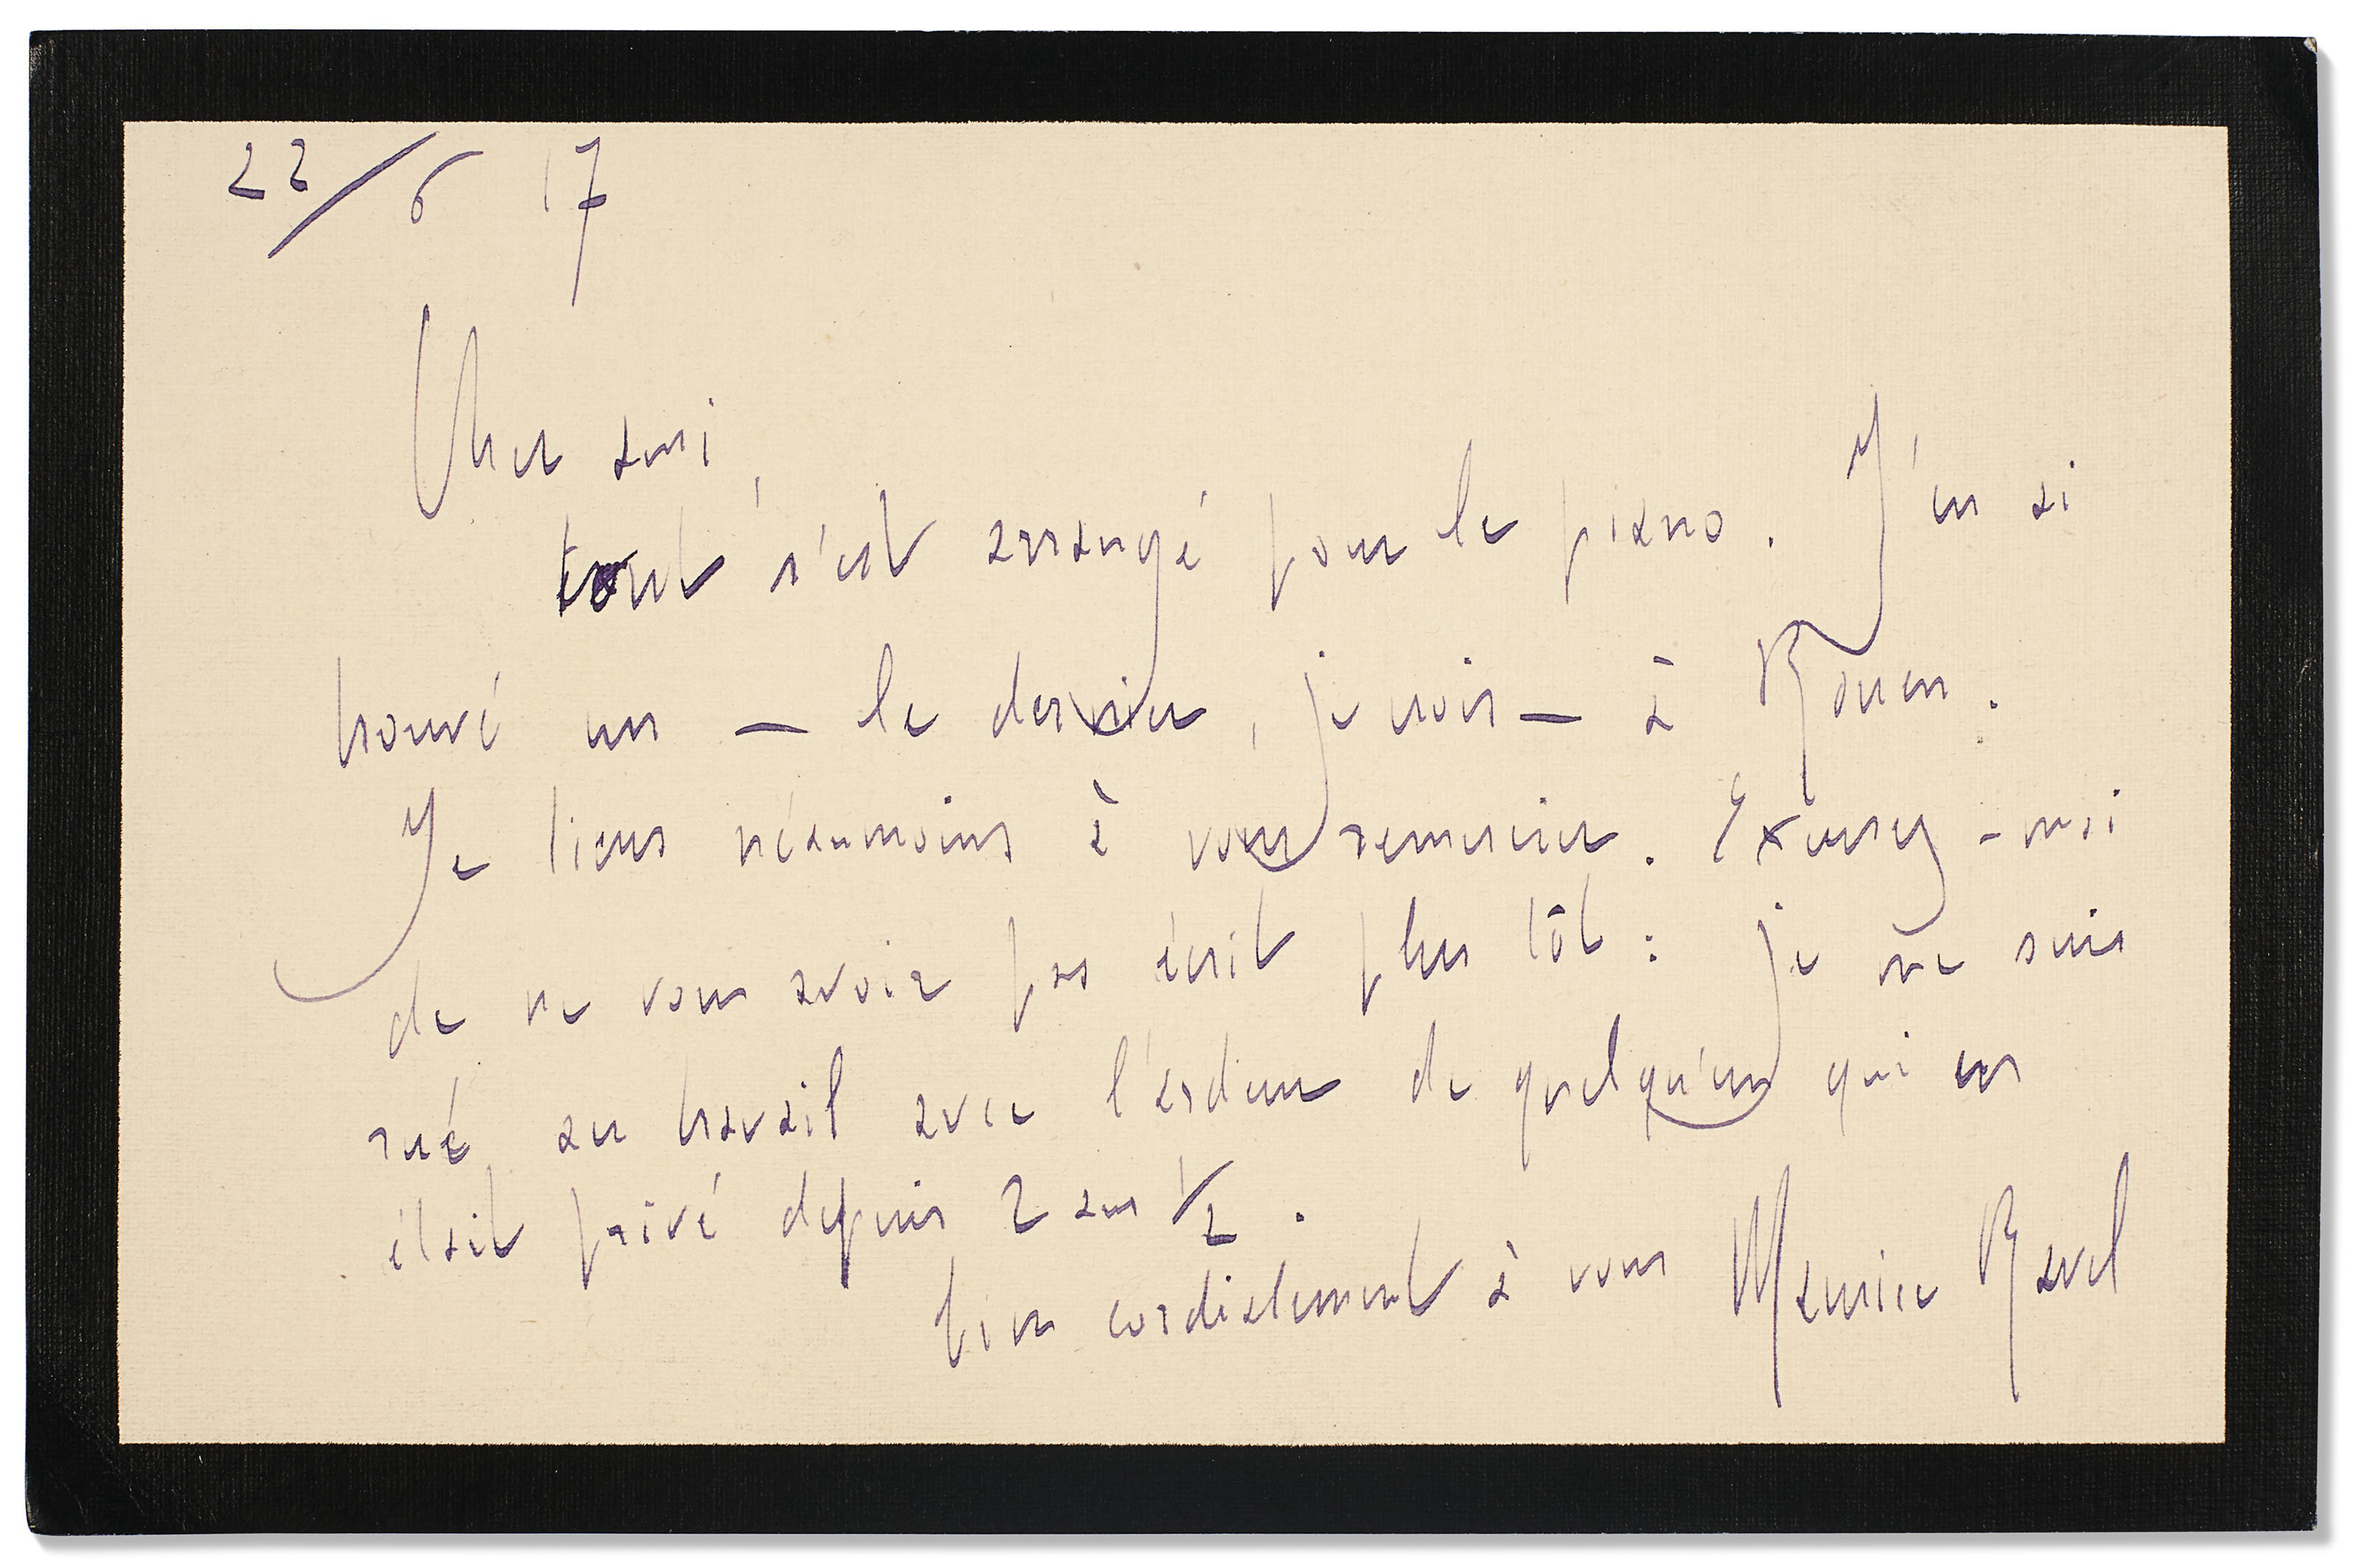 22/6 17
Cher ami,
tout s'est arrangé pour le piano. J'en ai
trouvé un — le dernier, je crois — à Rouen.
Je tiens néanmoins à vous remercier. Excusez-moi
de ne vous avoir pas écrit plus tôt : je me suis
rué au travail avec l'ardeur de quelqu'un qui en
était privé depuis 2 ans 1/2.
bien cordialement à vous Maurice Ravel